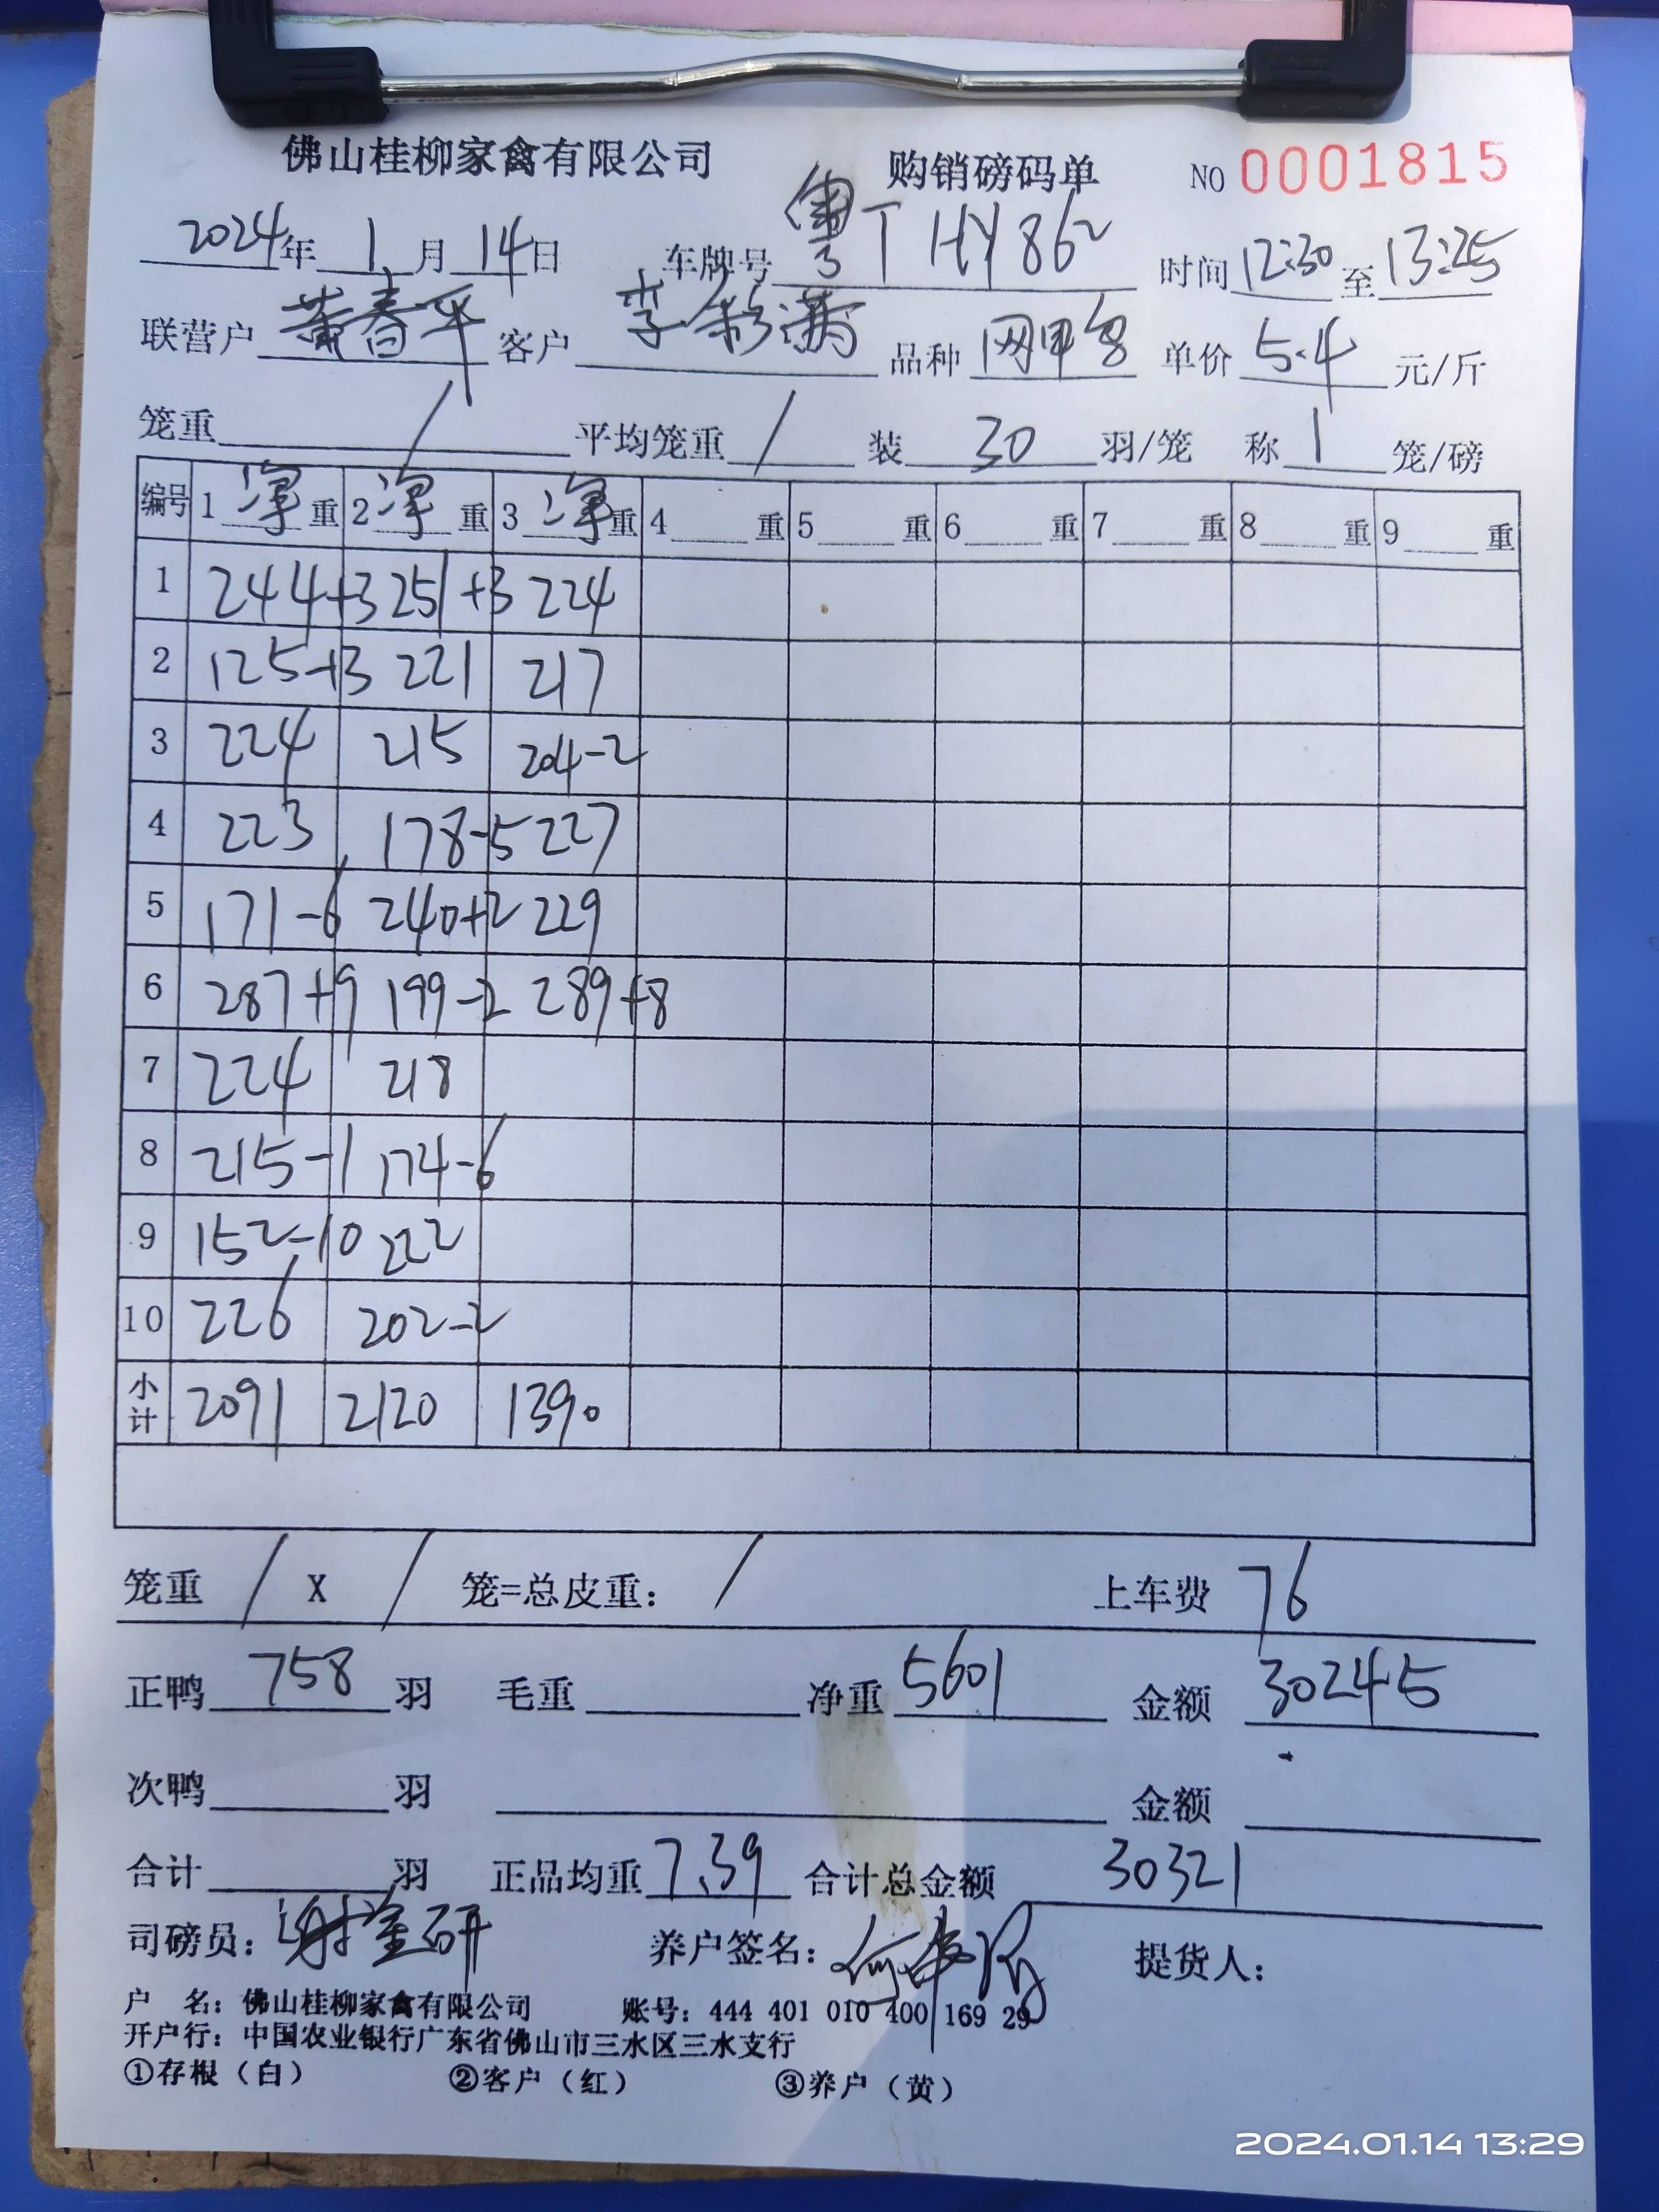 佛山桂柳家禽有限公司 购销磅码单 NO 0001815
2024年 1 月 14日 车牌号 粤THY862 时间 12:30 至 13:25
联营户 黄春平 客户 李彩满 品种 网甲 单价 5.4 元/斤
笼重 / 平均笼重 / 装 30 羽/笼 称 1 笼/磅
编号 1 净 重 2 净 重 3 净 重 4 重 5 重 6 重 7 重 8 重 9 重
1 244+3 251+3 224
2 125-13 221 217
3 224 215 204-2
4 223 178-5 227
5 171-6 240+2 229
6 287+9 199-2 289+8
7 224 218
8 215-1 174-6
9 152-10 222
10 226 202-2
小计 2091 2120 1390
笼重 / X / 笼=总皮重: / 上车费 76
正鸭 758 羽 毛重 净重 5601 金额 30245
次鸭 羽 金额
合计 羽 正品均重 7.39 合计总金额 30321
司磅员: 谢金研 养户签名: 提货人:
户 名: 佛山桂柳家禽有限公司 账号: 444 401 010 400 169 29
开户行: 中国农业银行广东省佛山市三水区三水支行
①存根（白） ②客户（红） ③养户（黄）
2024.01.14 13:29